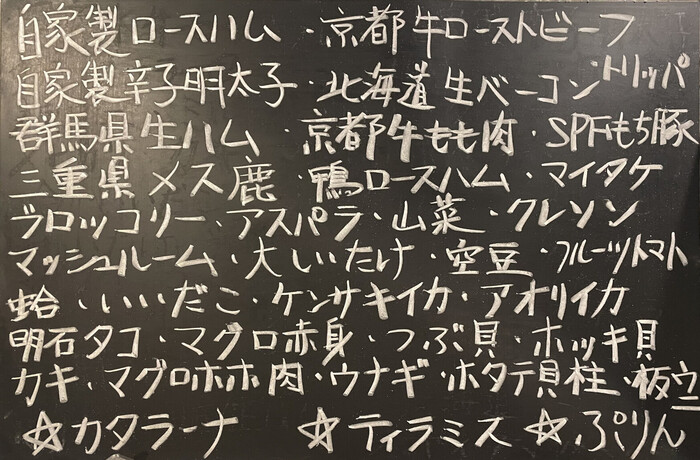 自家製ロースハム・京都牛ローストビーフ
自家製辛子明太子・北海道生ベーコン・トリッパ
群馬県生ハム・京都牛もも肉・SPFもち豚
三重県メス鹿・鴨ロースハム・マイタケ
ブロッコリー・アスパラ・山菜・クレソン
マッシュルーム・大しいたけ・空豆・フルーツトマト
蛤・いいだこ・ケンサキイカ・アオリイカ
明石タコ・マグロ赤身・つぶ貝・ホッキ貝
カキ・マグロホホ肉・ウナギ・ホタテ貝柱・板ウニ
☆カタラーナ ☆ティラミス ☆ぷりん